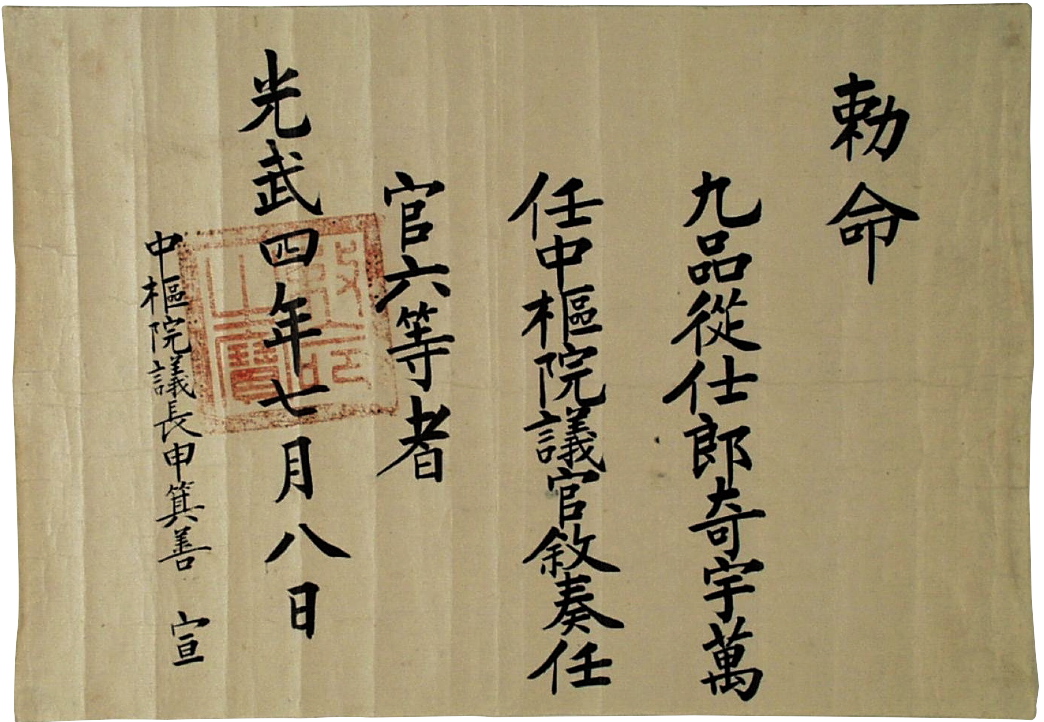 勅命
九品從仕郎奇宇萬
任中樞院議官敘奏任
官六等者
光武四年七月八日
中樞院議長申箕善 宣
勅命之寶